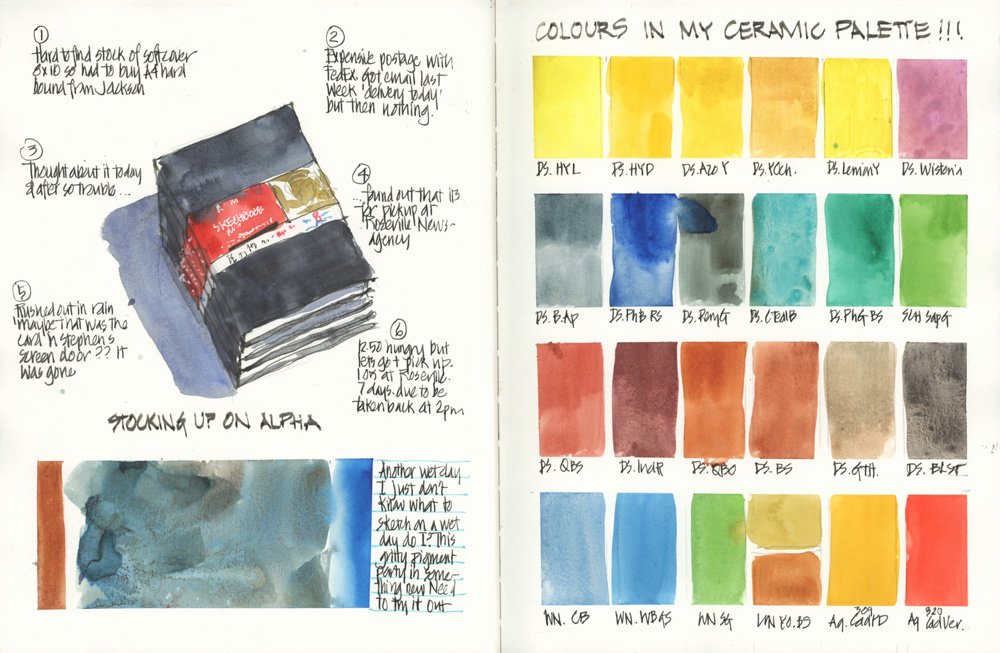 1
Hard to find stock of softcover
8x10 so had to buy A4 hard
bound from Jackson
2
Expensive postage with
FedEx. Got email last
week 'delivery today'
but then nothing.
3
Thought about it today
& after so trouble...
4
...found out that it's
for pickup at
Roseville News-
agency
5
Rushed out in rain
'maybe that was the
card in Stephen's
screen door?? It
was gone
6
1250 hungry but
lets go & pick up.
at Roseville.
7 days. due to be
taken back at 2pm
SKETCHBOOK
STOCKING UP ON ALPHA
Another wet day
I just don't
know what to
sketch on a wet
day do I? This
gritty pigment
party in some-
thing new Need
to try it out
COLOURS IN MY CERAMIC PALETTE!!!
DS. HYL
DS. HYD
DS. Azo Y
DS. YOch.
DS. Lemon Y
DS. Wisteria
DS. B.Ap
DS. Ph B RS
DS. Peny G
DS. C Teal B
DS. Ph G BS
SCH Sap G
DS. QBS
DS. Ind R
DS. QBO
DS. BS
DS. GTH.
DS. BLST
WN. CB
WN. WB GS
WN SG
WN YO. BS
Ag. 309 Cad Y D
Ag 320 Cad Ver.